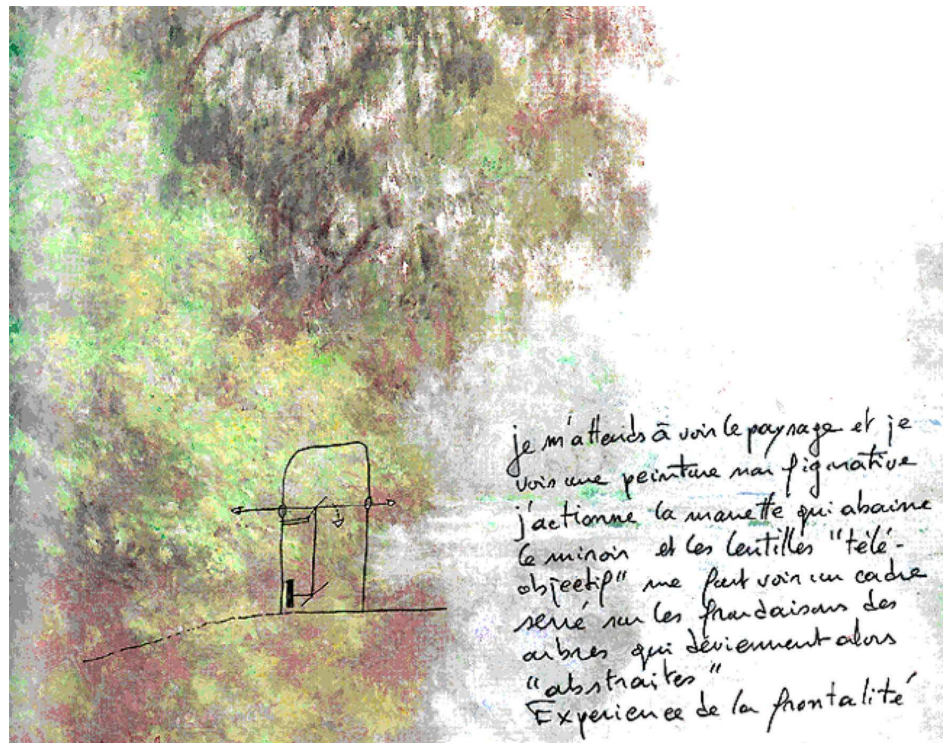 je m'attends à voir le paysage et je
vois une peinture non figurative
j'actionne la manette qui abaisse
le miroir et les lentilles "télé-
objectif" me font voir un cadre
serré sur les frondaisons des
arbres qui deviennent alors
"abstraites"
Expérience de la frontalité